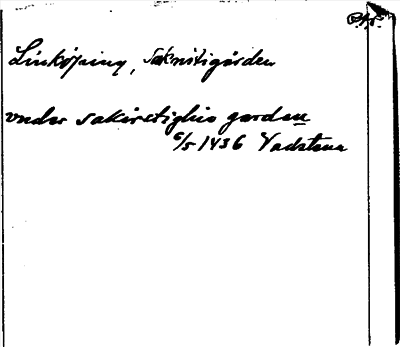 Linköping, Saknstigården
vnder sakirstighis garden
6/5 1436 Vadstena